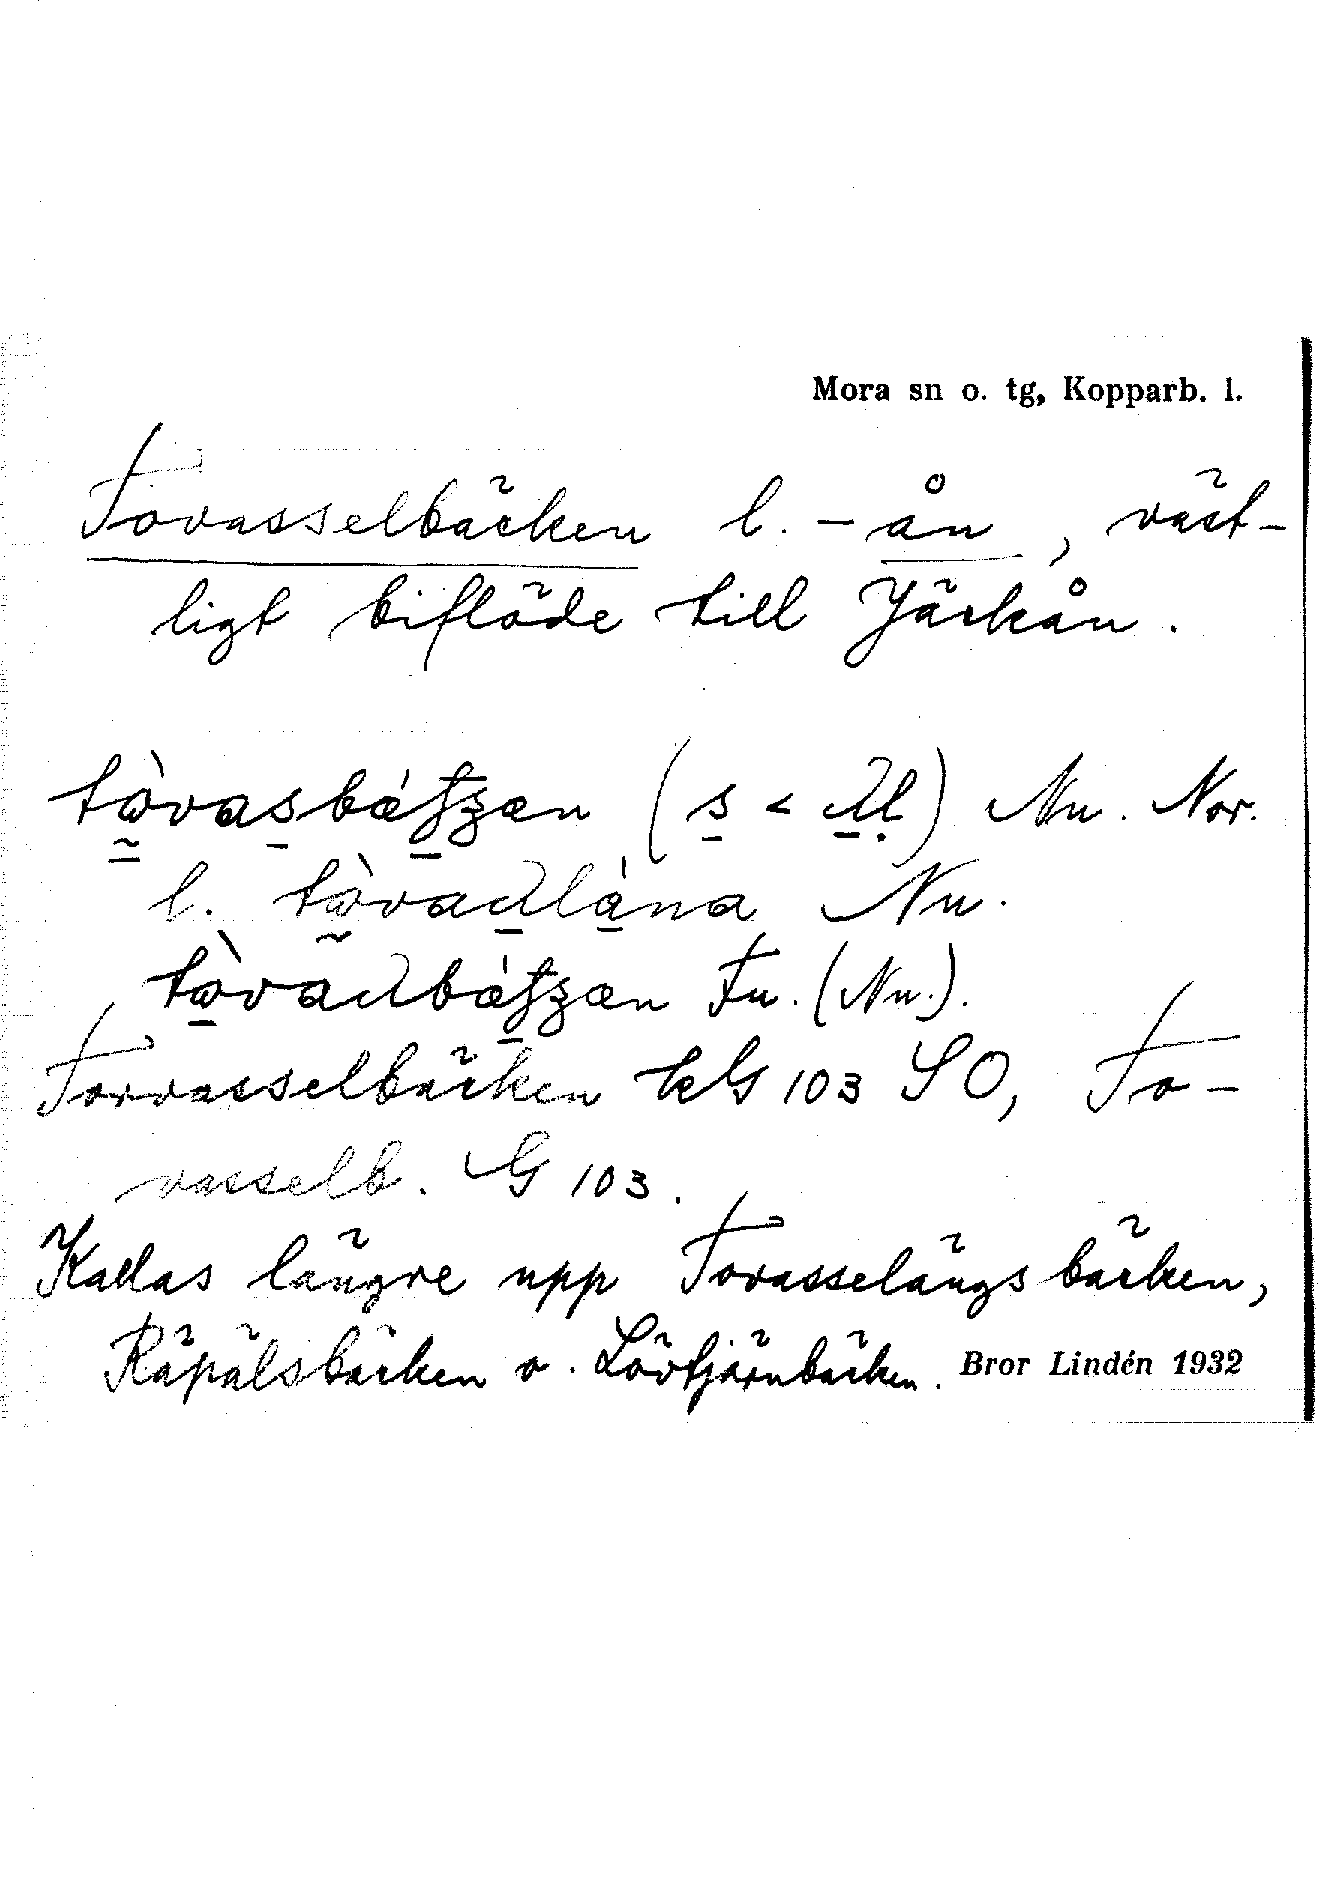 Mora sn o. tg, Kopparb. l.
Tovasselbäcken l. -ån, väst-
ligt biflöde till Järkån.
(s < ) Nu. Nor.
l. Nu.
Fu. (Nu.).
Torvasselbäcken kG 103 SO, To-
vasselb. G 103.
Kallas längre upp Tovasselängsbäcken,
Räpälsbäcken o. Lövtjärnbäcken.
Bror Lindén 1932